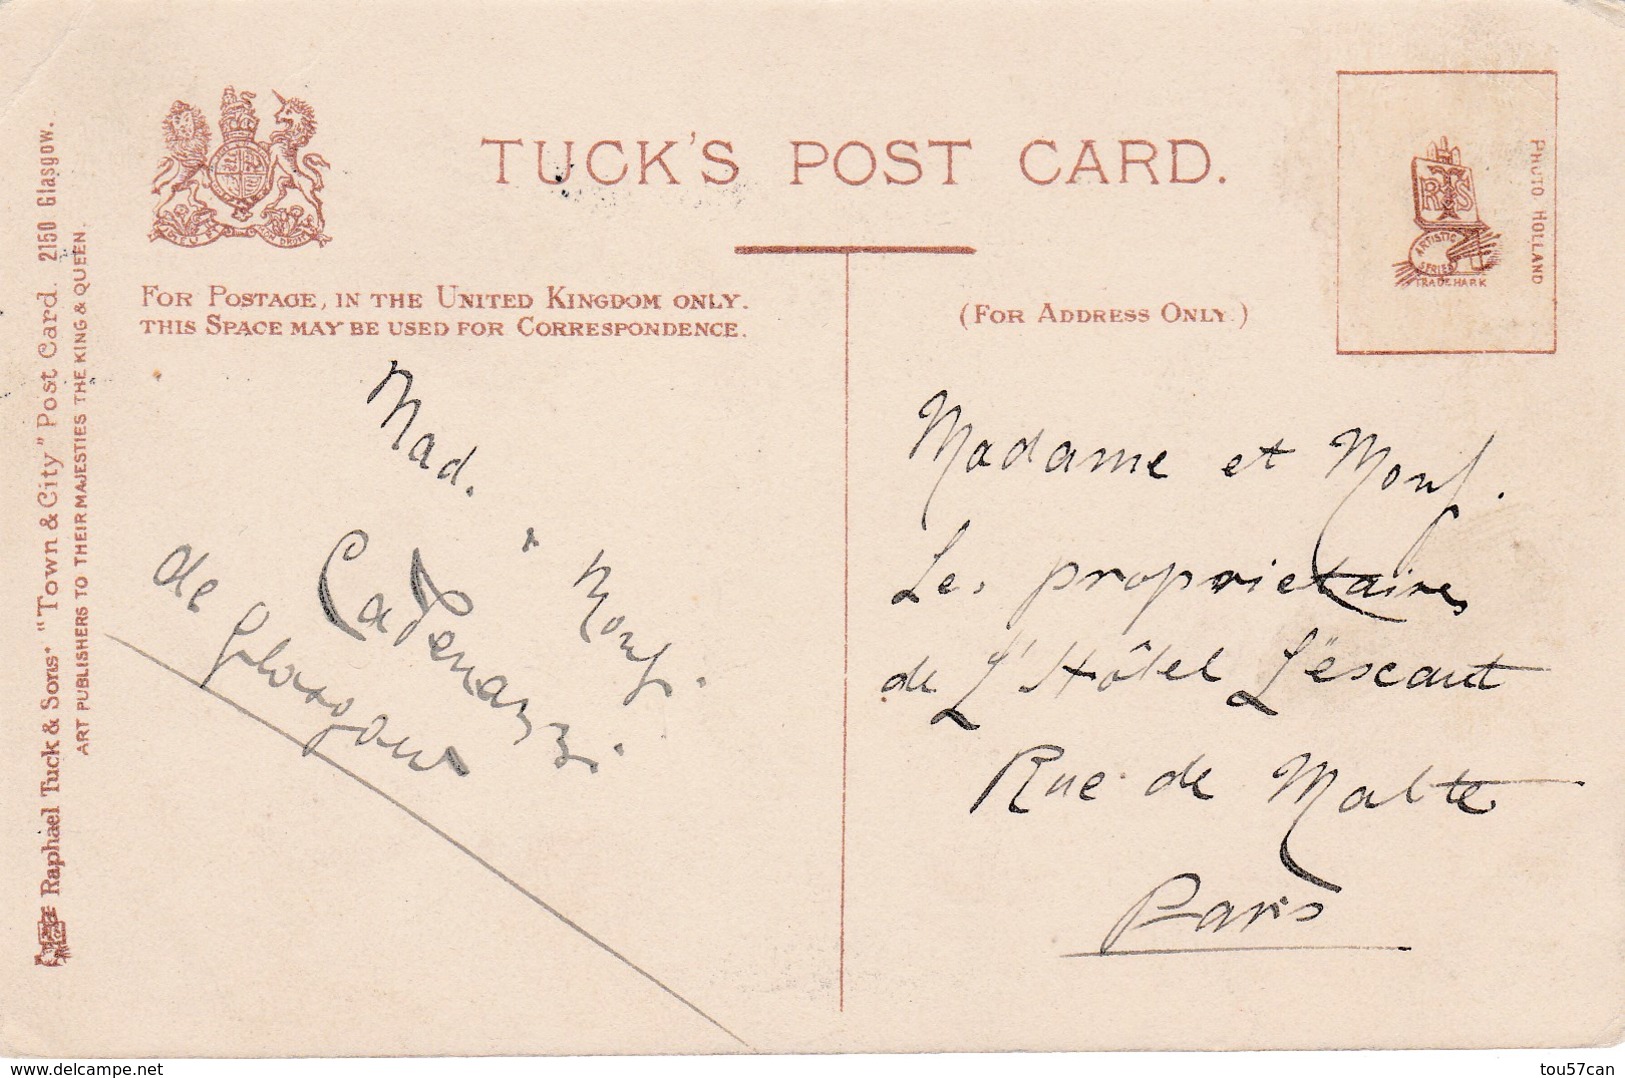 TUCK'S POST CARD.
FOR POSTAGE, IN THE UNITED KINGDOM ONLY.
THIS SPACE MAY BE USED FOR CORRESPONDENCE.
(FOR ADDRESS ONLY.)
PHOTO HOLLAND
RTS
ARTISTIC
SERIES
TRADE MARK
Raphael Tuck & Sons' "Town & City" Post Card. 2150 Glasgow.
ART PUBLISHERS TO THEIR MAJESTIES THE KING & QUEEN.
Mad.
Mons.
Cadenazzi
de
Madame et Mons.
Les proprietaires
de L'Hôtel L'escaut
Rue de Malte
Paris
delcampe.net
tou57can